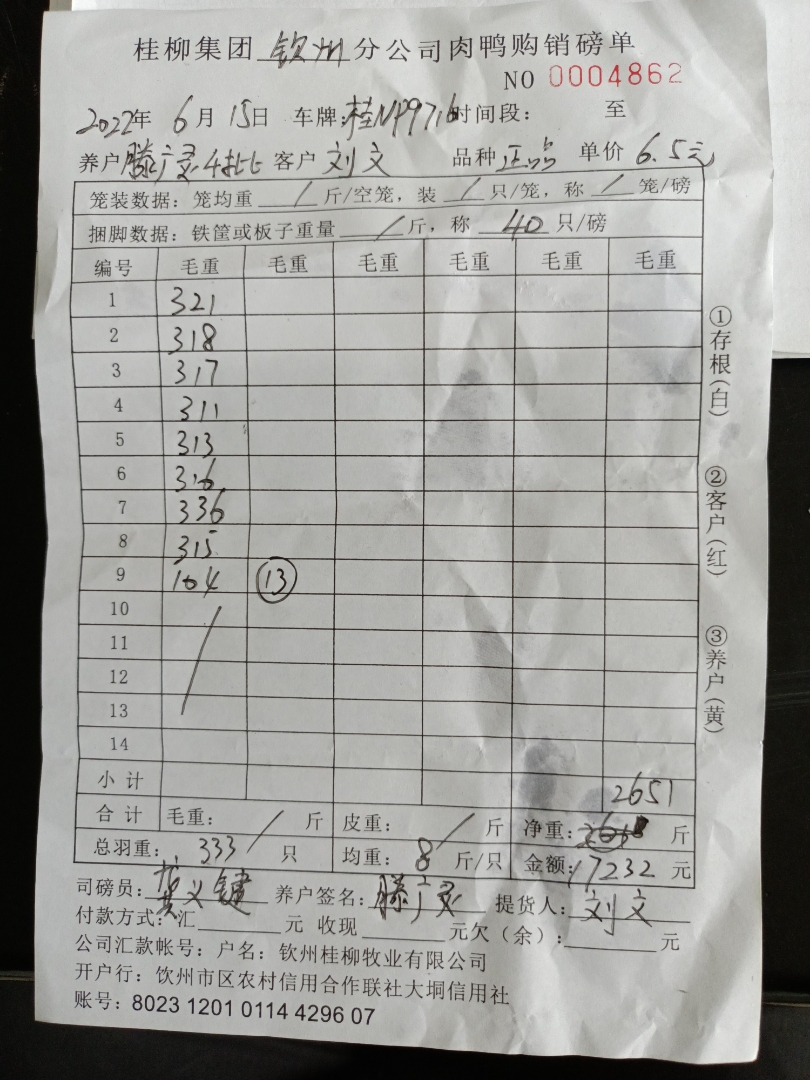 桂柳集团 钦州 分公司肉鸭购销磅单
NO 0004862
2022年 6月 15日 车牌:桂NP9716 时间段: 至
养户 滕广灵 4批 客户 刘文 品种 正品 单价 6.5元
笼装数据: 笼均重 / 斤/空笼, 装 / 只/笼, 称 / 笼/磅
捆脚数据: 铁筐或板子重量 / 斤, 称 40 只/磅
编号 毛重 毛重 毛重 毛重 毛重 毛重
1 321
2 318
3 317
4 311
5 313
6 316
7 336
8 315
9 104 ⑬
10
11
12
13
14
小计 2651
合计 毛重: / 斤 皮重: / 斤 净重: 斤
总羽重: 333 只 均重: 8 斤/只 金额: 17232 元
司磅员: 黄义键 养户签名: 滕广灵 提货人: 刘文
付款方式: 汇 元 收现 元欠(余): 元
公司汇款帐号: 户名: 钦州桂柳牧业有限公司
开户行: 钦州市区农村信用合作联社大垌信用社
账号: 8023 1201 0114 4296 07
①存根(白)
②客户(红)
③养户(黄)